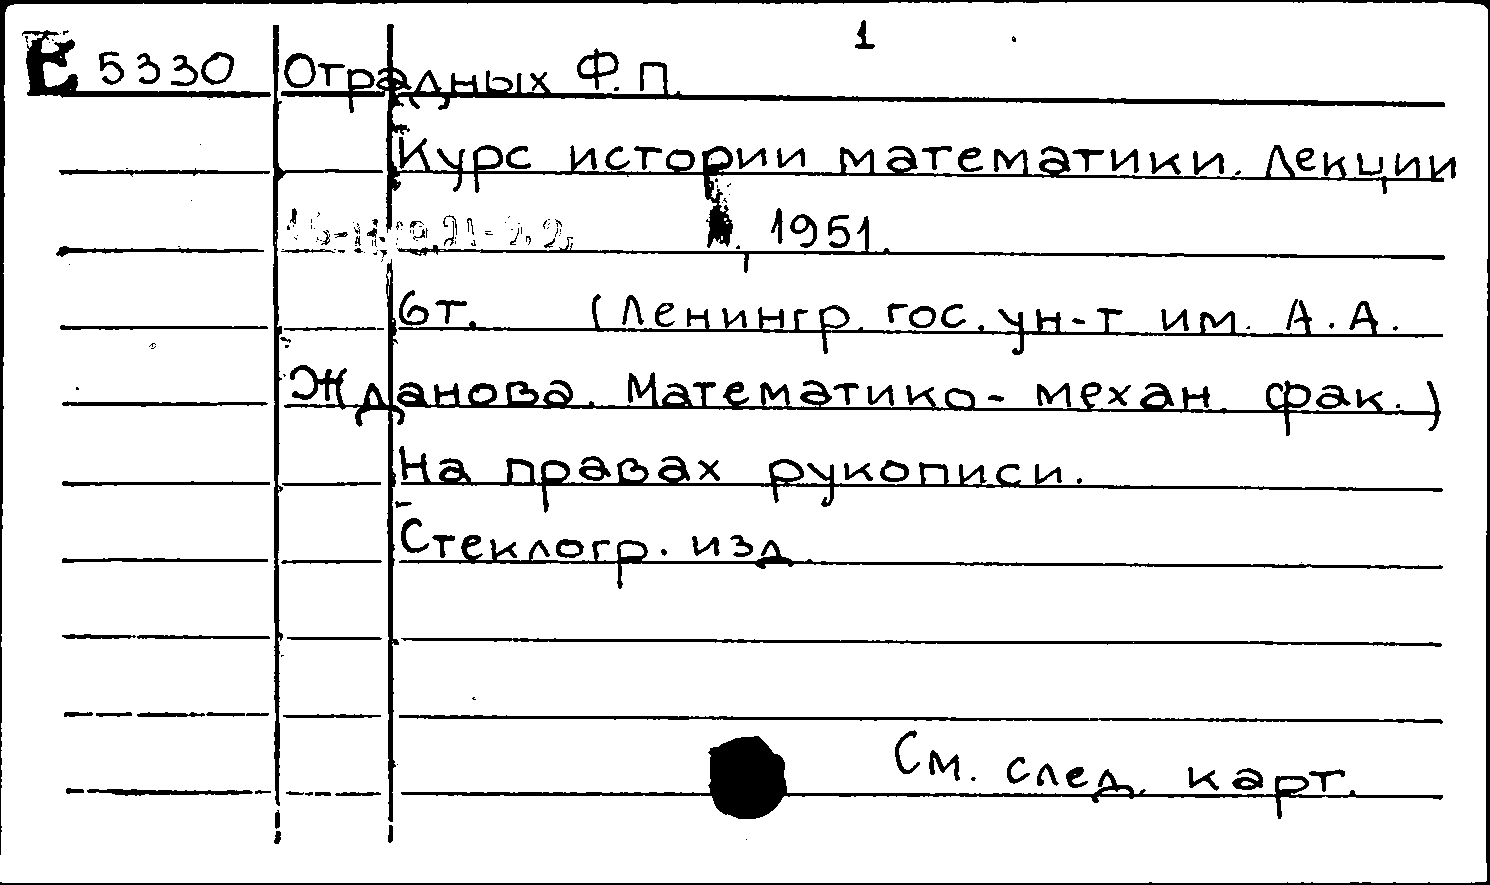 1
Е 5330 Отрадных Ф. П.
Курс истории математики. Лекции
1951.
6т. (Ленингр. гос. ун-т им. А. А.
Жданова. Математико-механ. фак.)
На правах рукописи.
Стеклогр. изд.
См. след. карт.